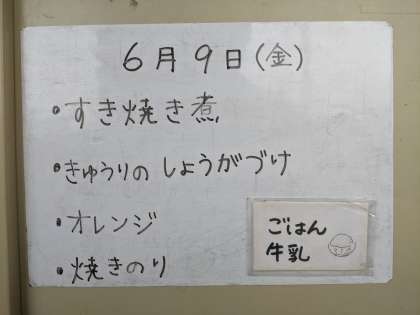 6月9日(金)
・すき焼き煮
・きゅうりの しょうがづけ
・オレンジ
・焼きのり
ごはん
牛乳